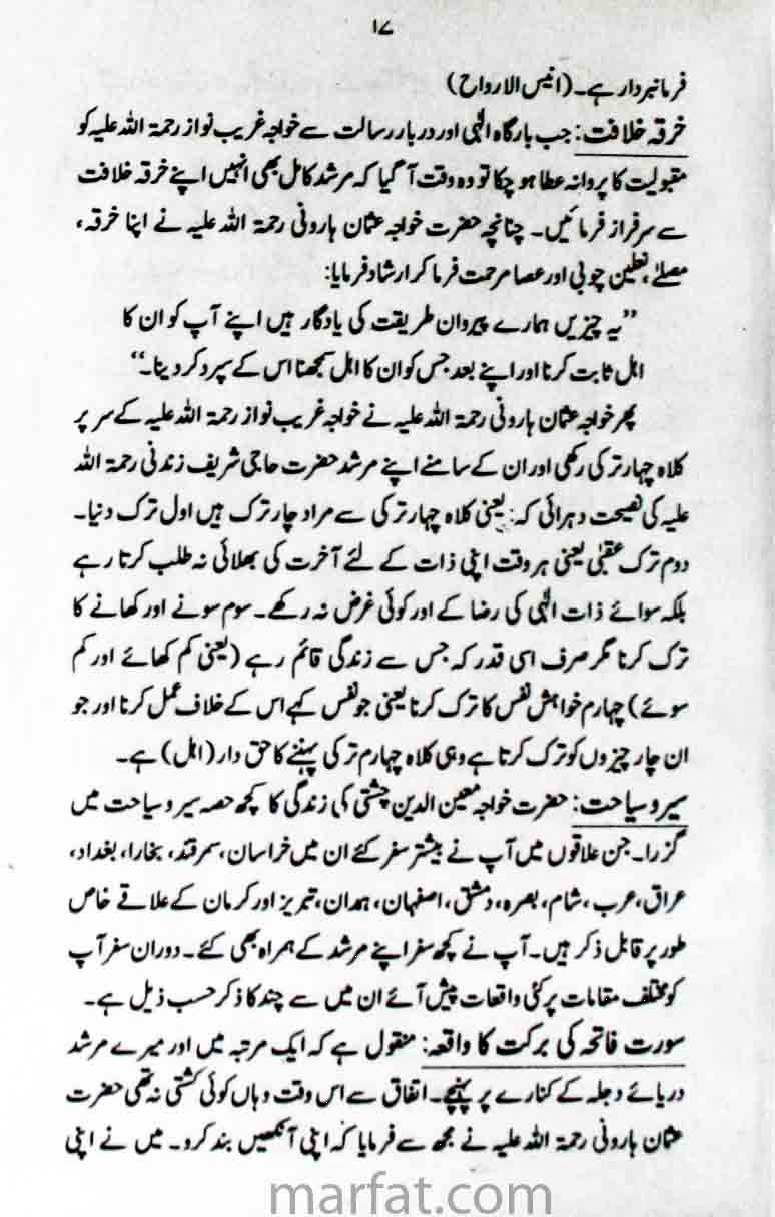 ۱۷
فرمانبردار ہے۔ (انیس الارواح)
خرقہ خلافت: جب بارگاہ الٰہی اور دربار رسالت سے خواجہ غریب نواز رحمۃ اللہ علیہ کو
مقبولیت کا پروانہ عطا ہو چکا تو وہ وقت آ گیا کہ مرشد کامل بھی انہیں اپنے خرقہ خلافت
سے سرفراز فرمائیں۔ چنانچہ حضرت خواجہ عثمان ہارونی رحمۃ اللہ علیہ نے اپنا خرقہ،
مصلےٰ، نعلین چوبی اور عصا مرحمت فرما کر ارشاد فرمایا:
”یہ چیزیں ہمارے پیروان طریقت کی یادگار ہیں اپنے آپ کو ان کا
اہل ثابت کرنا اور اپنے بعد جس کو ان کا اہل سمجھنا اس کے سپرد کر دینا۔“
پھر خواجہ عثمان ہارونی رحمۃ اللہ علیہ نے خواجہ غریب نواز رحمۃ اللہ علیہ کے سر پر
کلاہ چہار ترکی رکھی اور ان کے سامنے اپنے مرشد حضرت حاجی شریف زندنی رحمۃ اللہ
علیہ کی نصیحت دہرائی کہ: یعنی کلاہ چہار ترکی سے مراد چار ترک ہیں اول ترک دنیا۔
دوم ترک عقبیٰ یعنی ہر وقت اپنی ذات کے لئے آخرت کی بھلائی نہ طلب کرتا رہے
بلکہ سوائے ذات الٰہی کی رضا کے اور کوئی غرض نہ رکھے۔ سوم سونے اور کھانے کا
ترک کرنا مگر صرف اسی قدر کہ جس سے زندگی قائم رہے (یعنی کم کھائے اور کم
سوئے) چہارم خواہش نفس کا ترک کرنا یعنی جو نفس کہے اس کے خلاف عمل کرنا اور جو
ان چار چیزوں کو ترک کرتا ہے وہی کلاہ چہارم ترکی پہننے کا حق دار (اہل) ہے۔
سیر و سیاحت: حضرت خواجہ معین الدین چشتی کی زندگی کا کچھ حصہ سیر و سیاحت میں
گزرا۔ جن علاقوں میں آپ نے بیشتر سفر کئے ان میں خراسان، سمرقند، بخارا، بغداد،
عراق، عرب، شام، بصرہ، دمشق، اصفہان، ہمدان، تبریز اور کرمان کے علاقے خاص
طور پر قابل ذکر ہیں۔ آپ نے کچھ سفر اپنے مرشد کے ہمراہ بھی کئے۔ دوران سفر آپ
کو مختلف مقامات پر کئی واقعات پیش آئے ان میں سے چند کا ذکر حسب ذیل ہے۔
سورت فاتحہ کی برکت کا واقعہ: منقول ہے کہ ایک مرتبہ میں اور میرے مرشد
دریائے دجلہ کے کنارے پر پہنچے۔ اتفاق سے اس وقت وہاں کوئی کشتی نہ تھی حضرت
عثمان ہارونی رحمۃ اللہ علیہ نے مجھ سے فرمایا کہ اپنی آنکھیں بند کرو۔ میں نے اپنی
marfat.com